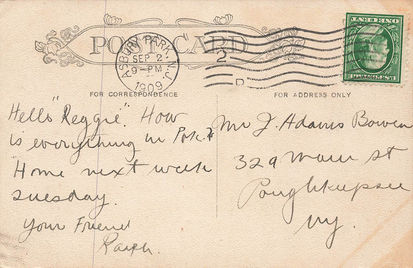 POST CARD
ASBURY PARK, N.J.
SEP 2
9-PM
1909
2
D
FOR CORRESPONDENCE
FOR ADDRESS ONLY
Hello "Reggie". How
is everything in Pok?
Home next week
Tuesday.
Your Friend
Ralph.
Mr J. Adams Bowen
329 Main st
Poughkeepsie
Ny.